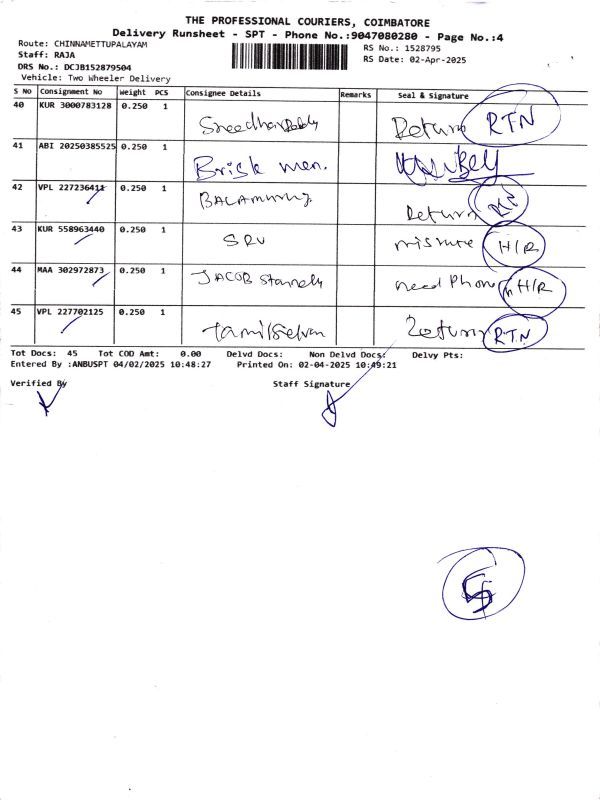 THE PROFESSIONAL COURIERS, COIMBATORE
Delivery Runsheet - SPT - Phone No.:9047080280 - Page No.:4
Route: CHINNAMETTUPALAYAM
Staff: RAJA
DRS No.: DCJB152879504
Vehicle: Two Wheeler Delivery
RS No.: 1528795
RS Date: 02-Apr-2025
S No Consignment No Weight PCS Consignee Details Remarks Seal & Signature
40 KUR 3000783128 0.250 1 Return RTN
41 ABI 20250385525 0.250 1 Brisk men.
42 VPL 227236411 0.250 1 Return
43 KUR 558963440 0.250 1 SRV H/R
44 MAA 302972873 0.250 1 JACOB need Phone H/R
45 VPL 227702125 0.250 1 Tamilselvan Return RTN
Tot Docs: 45 Tot COD Amt: 0.00 Delvd Docs: Non Delvd Docs: Delvy Pts:
Entered By :ANBUSPT 04/02/2025 10:48:27 Printed On: 02-04-2025 10:49:21
Verified By Staff Signature